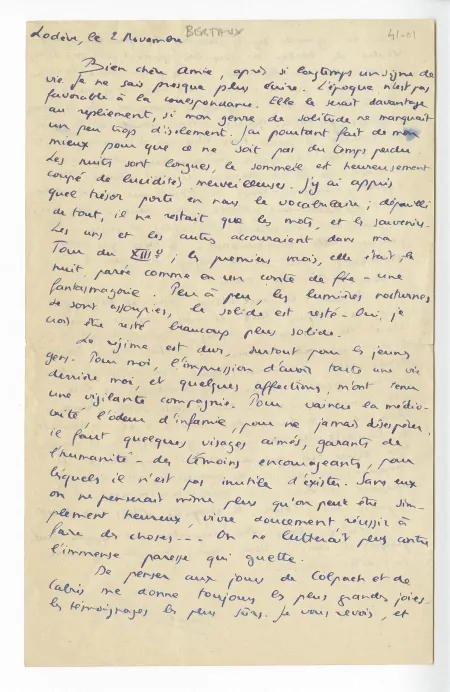 Lodève, le 2 Novembre
BERTAUX
41-01
Bien chère Amie, après si longtemps un signe de
vie. Je ne sais presque plus écrire. L'époque n'est pas
favorable à la correspondance. Elle le serait davantage
au repliement, si mon genre de solitude ne manquait
un peu trop d'isolement. J'ai pourtant fait de mon
mieux pour que ce ne soit pas du temps perdu.
Les nuits sont longues, le sommeil est heureusement
coupé de lucidités merveilleuses. J'y ai appris
quel trésor porte en nous le vocabulaire ; dépouillé
de tout, il ne restait que les mots, et les souvenirs.
Les uns et les autres accouraient dans ma
Tour du XIIIe ; les premiers mois, elle était, la
nuit, parée comme en un conte de fée - une
fantasmagorie. Peu à peu, les lumières nocturnes
se sont assoupies, le solide est resté - Oui, je
crois être resté beaucoup plus solide.
Le régime est dur, surtout pour les jeunes
gens. Pour moi, l'impression d'avoir toute une vie
derrière moi, et quelques affections, m'ont tenu
une vigilante compagnie. Pour vaincre la médio-
crité, l'odeur d'infamie, pour ne jamais désespérer,
il faut quelques visages aimés, garants de
l'humanité - des témoins encourageants, pour
lesquels il n'est pas inutile d'exister. Sans eux
on ne penserait même plus qu'on peut être sim-
plement heureux, vivre doucement, réussir à
faire des choses --- On ne lutterait plus contre
l'immense paresse qui guette.
De penser aux jours de Colpach et de
Cabris me donne toujours les plus grandes joies -
les témoignages les plus sûrs. Je vous revois, et